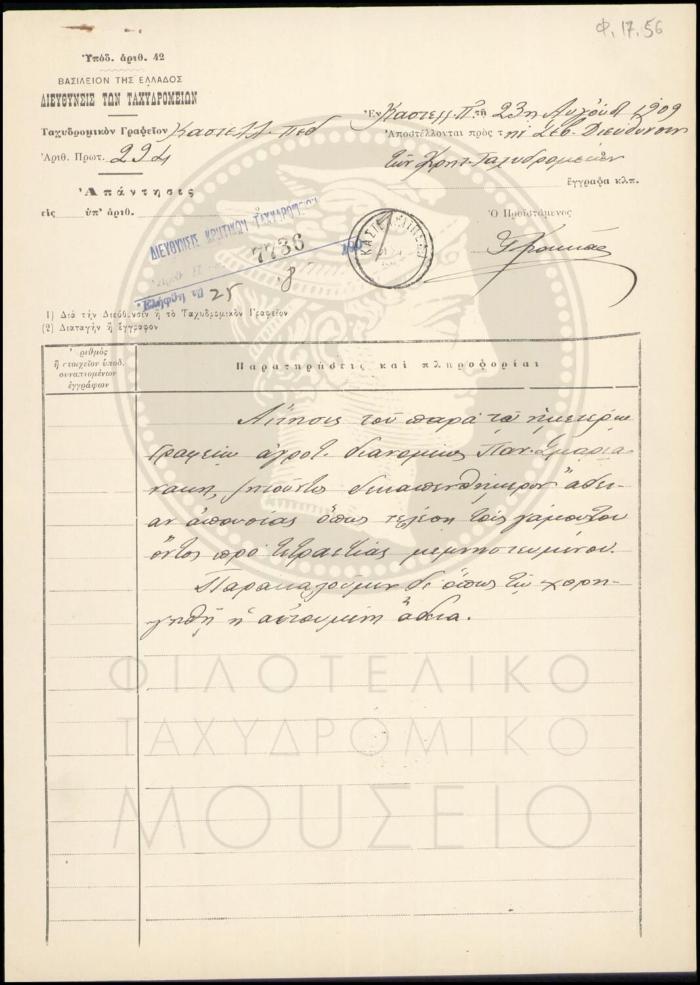 Φ. 17. 56
Ὑπόδ. ἀριθ. 42
ΒΑΣΙΛΕΙΟΝ ΤΗΣ ΕΛΛΑΔΟΣ
ΔΙΕΥΘΥΝΣΙΣ ΤΩΝ ΤΑΧΥΔΡΟΜΕΙΩΝ
Ταχυδρομικὸν Γραφεῖον Καστελλ. Πεδ
Ἀριθ. Πρωτ. 294
Ἀπάντησις
εἰς ὑπ' ἀριθ.
Ἐν Καστελλ. Π. τῇ 23ῃ Αὐγούσ 1909
Ἀποστέλλονται πρὸς τ ῃ Σεβ. Διεύθυνσιν
τῶν Κρητ. Ταχυδρομείων
ἔγγραφα κλπ.
Ὁ Προϊστάμενος
ΔΙΕΥΘΥΝΣΙΣ ΚΡΗΤΙΚΩΝ ΤΑΧΥΔΡΟΜΕΙΩΝ
7736
190
Ἐλήφθη τῇ 25 8
1) Διὰ τὴν Διεύθυνσιν ἢ τὸ Ταχυδρομικὸν Γραφεῖον
(2) Διαταγὴ ἢ ἔγγραφον
ριθμὸς
ἢ στοιχεῖον ὑποδ.
συναπτομένων
ἐγγράφων
Παρατηρήσεις καὶ πληροφορίαι
Αἴτησις τοῦ παρὰ τῷ ἡμετέρῳ
Γραφείῳ ἀγροτ. διανομέως Παν. Σμαρια
νάκη, ζητοῦντος δεκαπενθήμερον ἄδει-
αν ἀπουσίας ὅπως τελέσῃ τοὺς γάμους του
ὄντος πρὸ τετραετίας μεμνηστευμένου.
Παρακαλοῦμεν δὲ ὅπως τῷ χορη-
γηθῇ ἡ αἰτουμένη ἄδεια.
ΦΙΛΟΤΕΛΙΚΟ
ΤΑΧΥΔΡΟΜΙΚΟ
ΜΟΥΣΕΙΟ